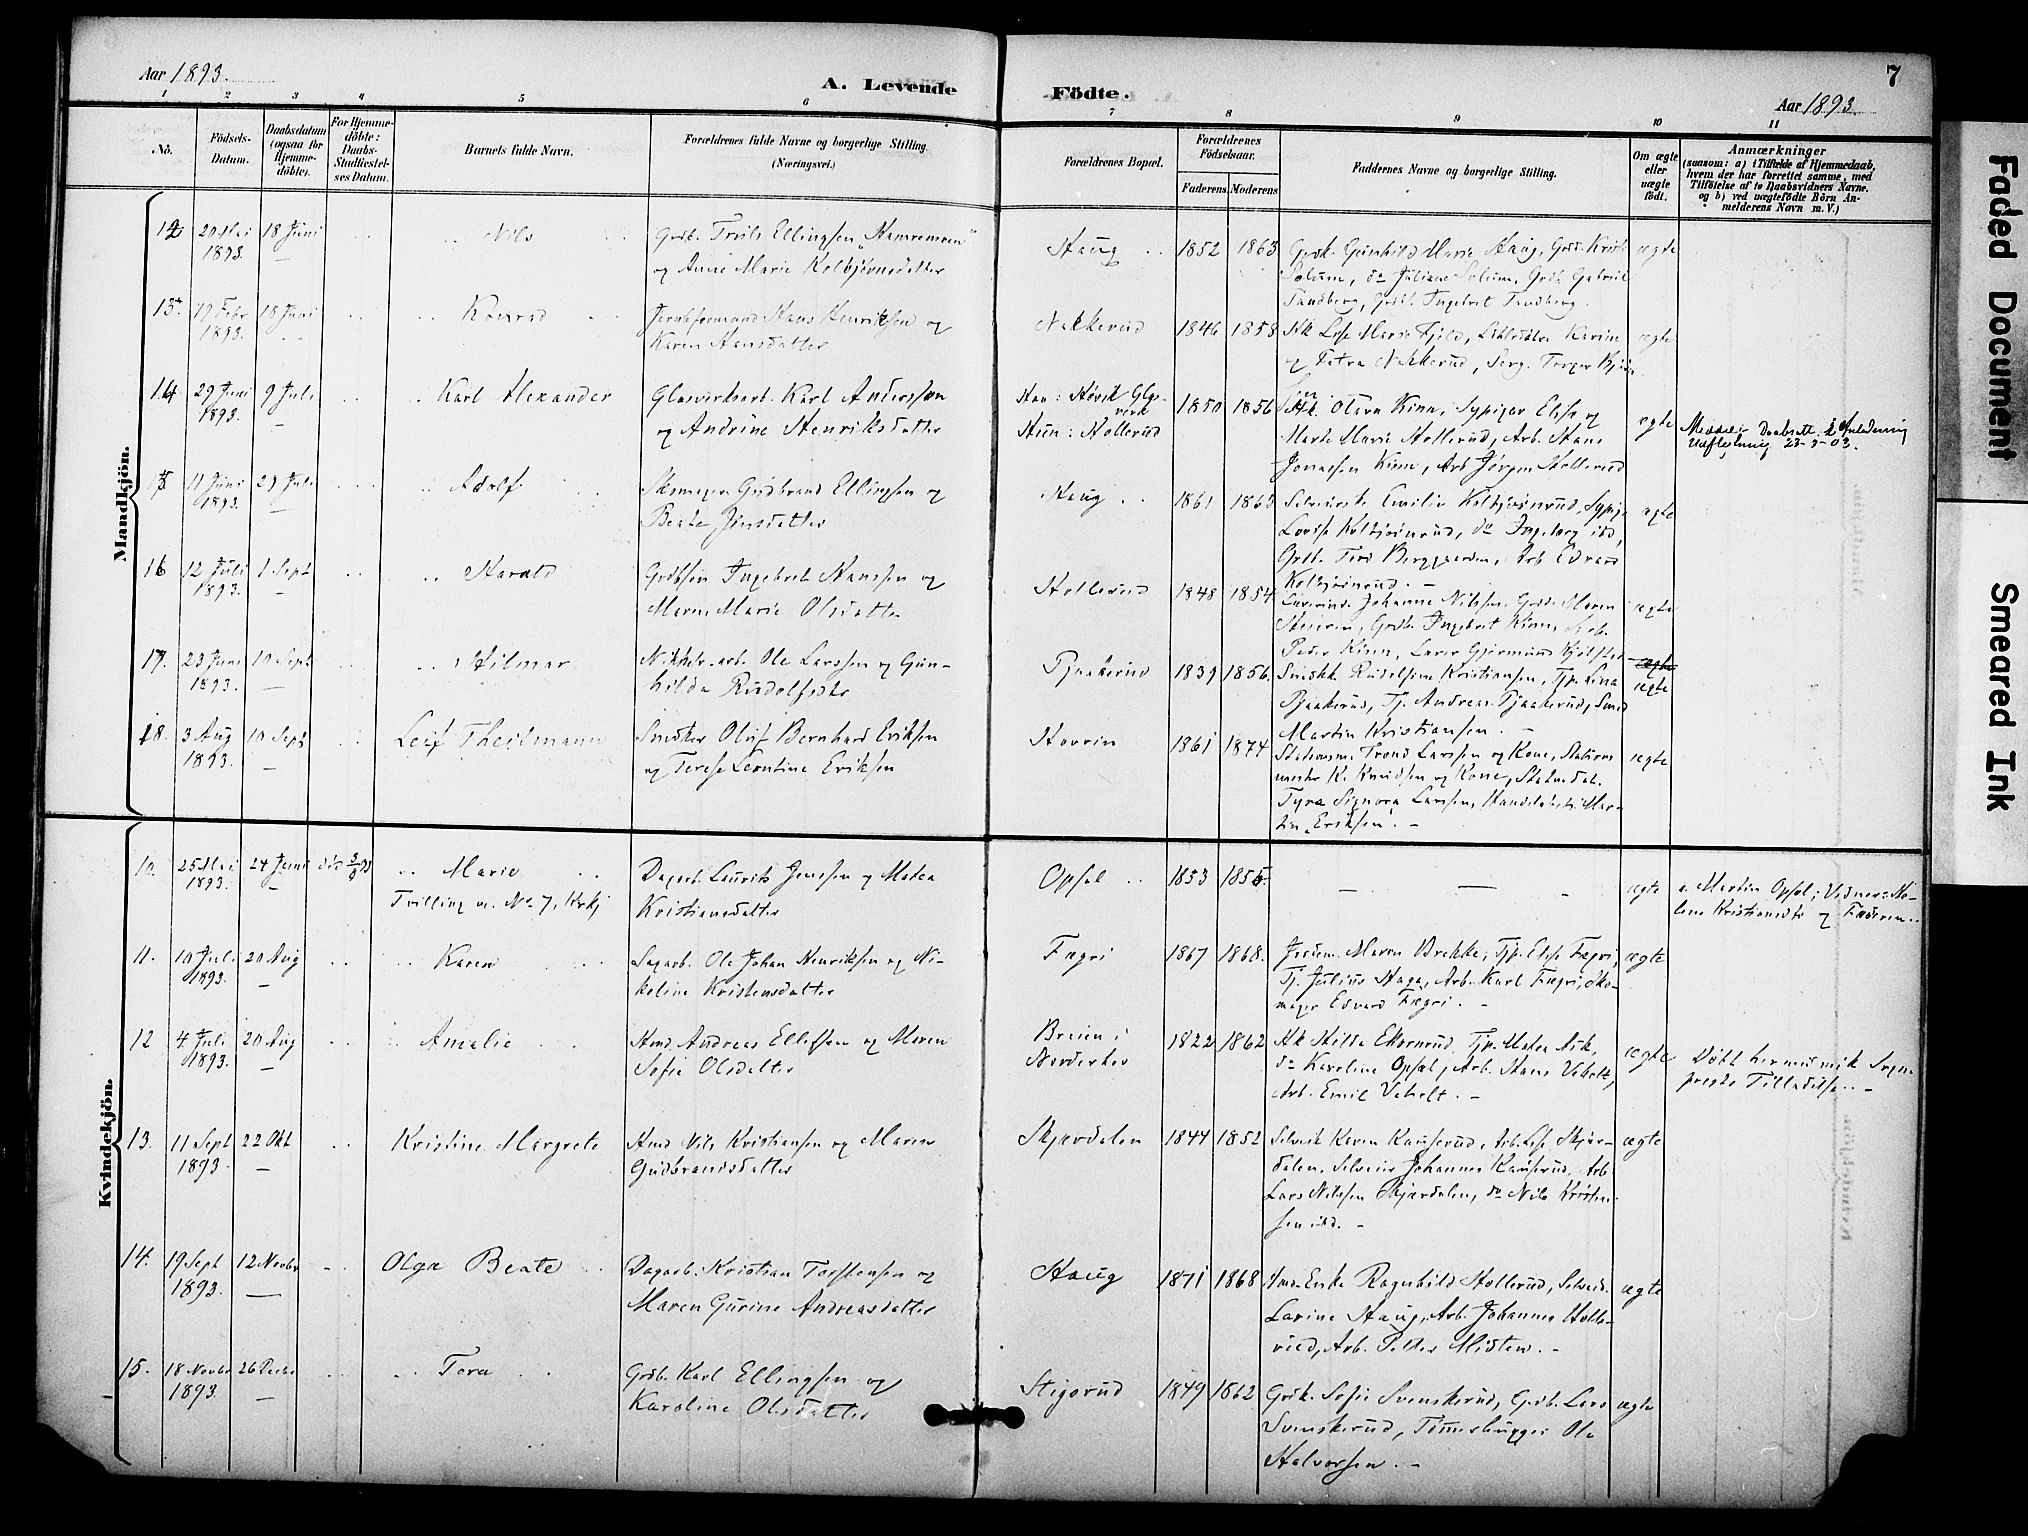 Aar 1893.
A. Levende
Födte.
7
Aar 1893
1 2 3 4 5 6 7 8 9 10 11
No.
Födsels-
Datum.
Daabsdatum
(ogsaa for
Hjemme-
döbte).
For Hjemme-
döbte:
Daabs-
Stadfæstel-
ses Datum.
Barnets fulde Navn.
Forældrenes fulde Navne og borgerlige Stilling.
(Næringsvei.)
Forældrenes Bopæl.
Forældrenes
Födselsaar.
Faderens. Moderens
Faddernes Navne og borgerlige Stilling.
Om ægte
eller
uægte
födt.
Anmærkninger
(saasom: a) i Tilfælde af Hjemmedaab,
hvem der har forrettet samme, med
Tilföielse af to Daabsvidners Navne.
og b) ved uægtefödte Börn An-
melderens Navn m. V.)
Mandkjön.
12 20 Mai 1893. 18 Juni Nils
Grdb. Truls Ellingsen
og Anne Marie Kolbjörnsdatter
Haug 1852 1863
Grdk. Gunhild Marie Haug,
Solum, do Juliane Solum, Grdb. Gabriel
Sandberg, Grdb. Ingebret Sandberg.
ægte
13 19 Febr 1893. 18 Juni Konrad
Hans Henriksen og
Karen Hansdatter
Nakkerud 1846 1858
og Petra Nakkerud, Serg.
ægte
14 29 Juni 1893. 9 Juli Karl Alexander
Glasverksarb. Karl Anderssen
og Andrine Henriksdatter
Han: Høvik Glas-
verk
Hun: Hollerud
1850 1856
Olava Kinn, Sypige Elise og
Marte Marie Hollerud, Arb. Hans
Jonassen Kinn, Arb Jörgen Hollerud
ægte
23-3-03.
15 11 Juni 1893. 23 Juli Adolf
Skomager Gudbrand Ellingsen og
Beate Jensdatter
Haug 1861 1863
Emilie Kolbjörnrud, Sypige
Lovise Kolbjörnrud, do Ingeborg ibd,
Arb Edvard
Kolbjörnrud. –
ægte
16 12 Juli 1893. 1 Sept Harald
Ingebret Hanssen og
Maren Marie Olsdatter
Hollerud 1848 1854
Johanne Nilssen, Maren
Grdb. Ingebret Kinn,
Peder Kinn,
ægte
17. 23 Juni 1893. 10 Sept Hilmar
Ole Larssen og Gun-
hilda Rudolfsdtr
Tjaakerud 1839 1856.
Kristiansen,
Tjaakerud, Tj. Andreas Tjaakerud, Smed
Martin Kristiansen. –
ægte
ægte
18. 3 Aug 1893. 10 Sept Leif Theilmann
Snedker Oluf Bernhard Eriksen
og Terese Leontine Eriksen
Hovrin 1861 1874
Trond Larssen og Kone, Stations
mester K. Knudsen og Kone,
Tyra Signora Larssen, Mar-
tin Eriksen. –
ægte
Kvindekjön.
10. 25 Mai 1893. 24 Juni Marie
Tvilling m. No 7, Krkj
Dagarb. Laurits Jenssen og Matea
Kristiansdatter
Opsal 1853 1855.
– – –
ægte
a. Martin Opsal; Vidner:
Kristiansdtr og Faderen.
11. 10 Juli 1893. 20 Aug Karen
Sagarb. Ole Johan Henriksen og Ni-
koline Kristensdatter
Fægri 1867 1868.
Maren Brekke, Tjp. Elise Fægri,
Tj. Julius Haga, Arb. Karl Fægri, Sko-
mager Edvard Fægri. –
ægte
12 4 Juli 1893. 20 Aug Amalie
Hmd. Andreas Ellefsen og Maren
Sofie Olsdatter
Breien i
Norderhov
1822 1862
Hk Hilda Ekornrud, Tjp. Matea Ask,
do Karoline Opsal, Arb. Hans Veholt,
Arb. Emil Veholt. –
ægte
Döbt her med vedk Sogne
prests Tilladelse. –
13. 11 Sept 1893. 22 Okt Kristine Margrete
Hmd Nils Kristiansen og Maren
Gudbrandsdatter
Skjærdalen 1844 1852
Karen Kamperud, Skjær-
dalen, Johannes Kamperud, Arb.
Lars Nilssen Skjærdalen, do Nils Kristian-
sen ibd. –
ægte
14. 19 Sept 1893. 12 Novbr Olga Beate
Dagarb. Kristian Torstensen og
Maren Gurine Andreasdatter
Haug 1871 1868
Hmd. Enke Ragnhild Hollerud,
Larine Haug, Arb. Johannes Holle-
rud, Arb. Petter Midten. –
ægte
15. 18 Novbr 1893 26 Decbr Tora
Grdb. Karl Ellingsen og
Karoline Olsdatter
Stigorud 1849 1862
Grdk. Sofie Svenskerud, Grdb. Lars
Svenskerud, Tömmerhugger Ole
Halvorsen. –
ægte
Faded Document
Smeared Ink